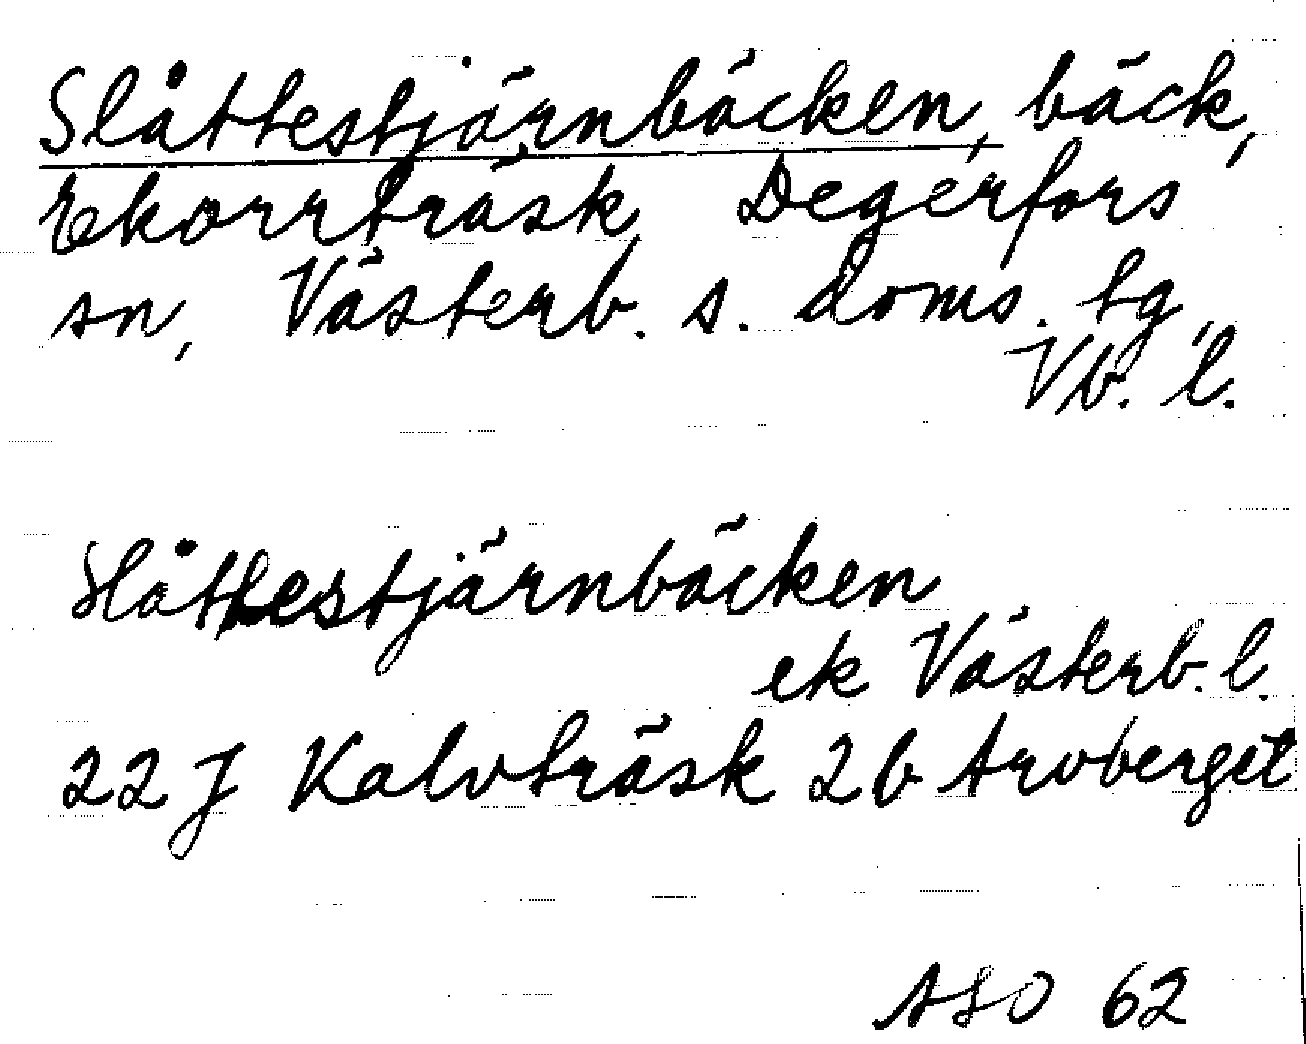 Slåttestjärnbäcken, bäck,
Ekorrträsk, Degerfors
sn, Västerb. s. doms. tg,
Vb. l.
Slåttestjärnbäcken
ek Västerb. l.
22 J Kalvträsk 2b Arvberget
ASO 62